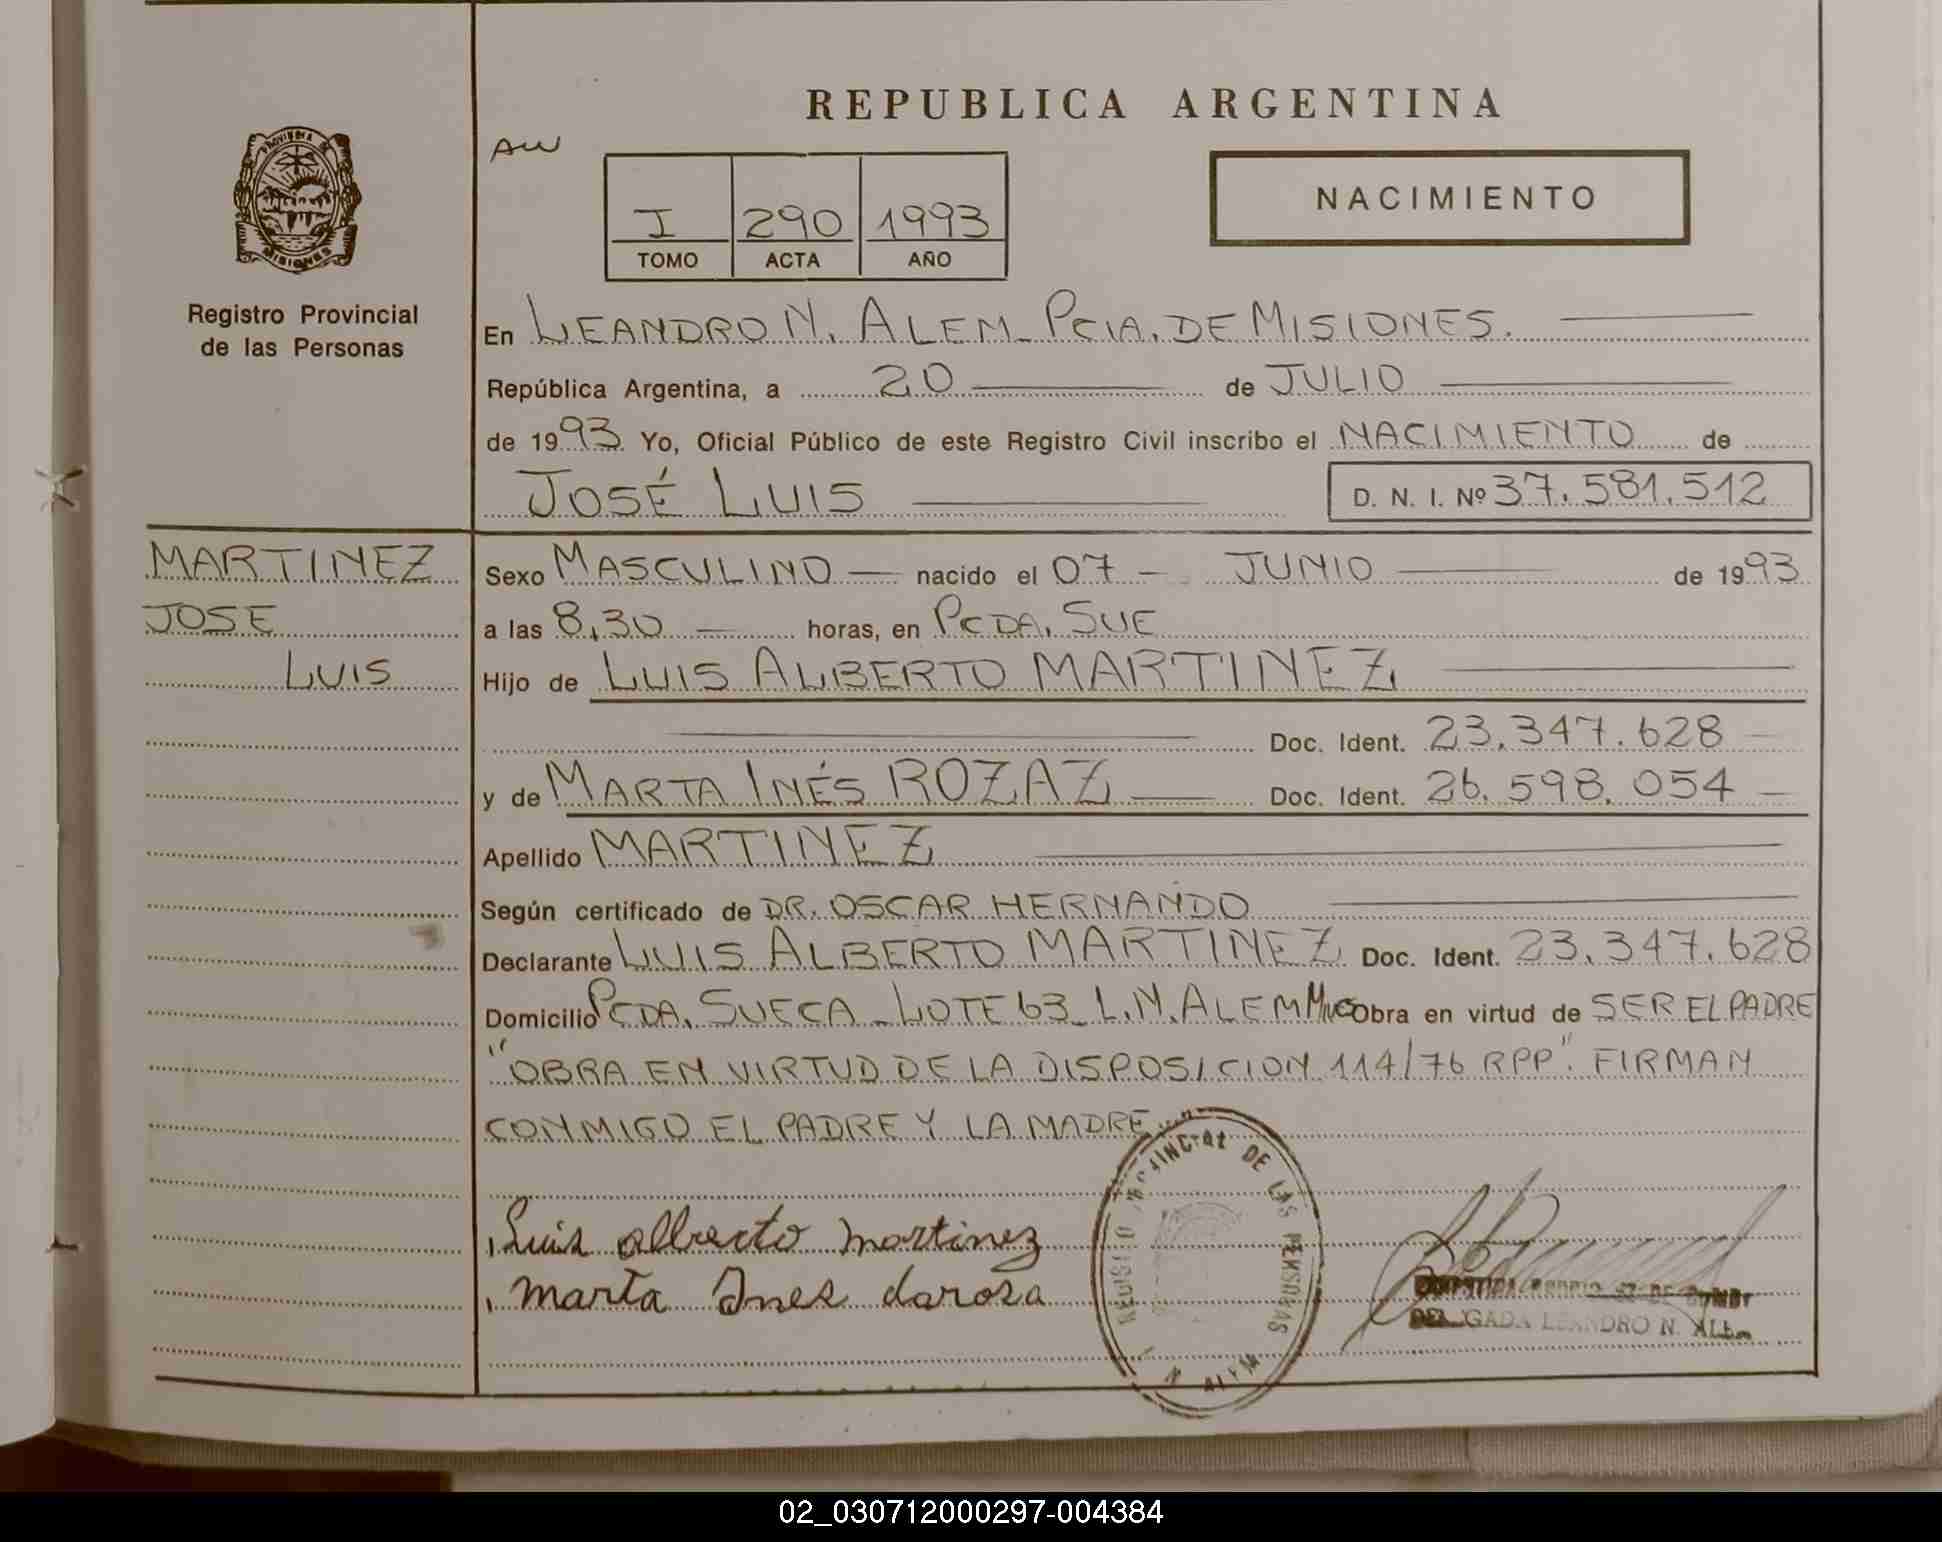 REPUBLICA ARGENTINA
AW
PROVINCIA DE
MISIONES
I 290 1993
TOMO ACTA AÑO
NACIMIENTO
Registro Provincial
de las Personas
En LEANDRO N. ALEM_ PCIA. DE MISIONES.
República Argentina, a 20 de JULIO
de 1993 Yo, Oficial Público de este Registro Civil inscribo el NACIMIENTO de
JOSÉ LUIS D. N. I. Nº 37.581.512
MARTINEZ
JOSE
LUIS
Sexo MASCULINO — nacido el 07 - JUNIO de 1993
a las 8,30 — horas, en PCDA. SUE
Hijo de LUIS ALBERTO MARTINEZ
Doc. Ident. 23.347.628
y de MARTA INÉS ROZAZ Doc. Ident. 26.598.054 —
Apellido MARTINEZ
Según certificado de DR. OSCAR HERNANDO
Declarante LUIS ALBERTO MARTINEZ Doc. Ident. 23.347.628
Domicilio PCDA. SUECA_LOTE 63_L.N.ALEM Obra en virtud de SER EL PADRE
"OBRA EN VIRTUD DE LA DISPOSICION 114/76 RPP". FIRMAN
CONMIGO EL PADRE Y LA MADRE
Luis alberto martinez
marta Ines darosa
REGISTRO PROVINCIAL DE LAS PERSONAS
N ALEM
DELEGADA LEANDRO N. ALEM
02_030712000297-004384